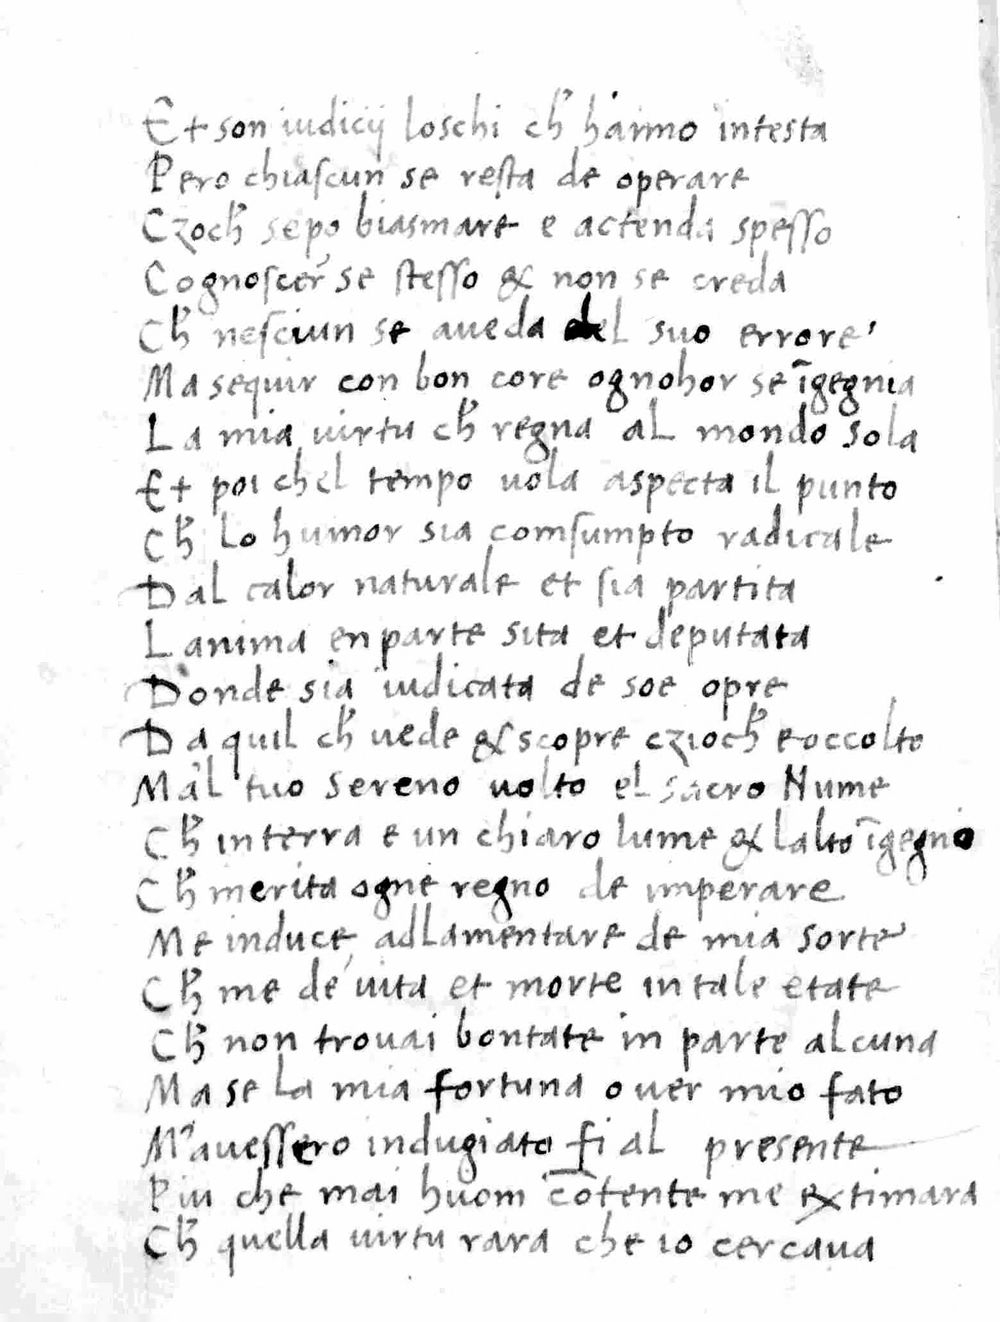 Et son iudicij loschi ch̄ hanno intesta
Pero chiaſcun se reſta de operare
Czoch̄ sepo biasmare e actenda speſſo
Cognoſcer se ſteſſo & non se creda
Ch̄ neſciun se aueda del suo errore
Ma sequir con bon core ognohor se īgegnia
La mia uirtu ch̄ regna al mondo sola
Et poi chel tempo uola aspecta il punto
Ch̄ lo humor sia comſumpto radicale
Dal calor naturale et ſia partita
Lanima en parte sita et deputata
Donde sia iudicata de soe opre
Da quil ch̄ uede & scopre czioch̄ e occolto
Mal tuo sereno uolto el sacro Nume
Ch̄ in terra e un chiaro lume & lalto īgegno
Ch̄ merita ogne regno de imperare
Me induce adlamentare de mia sorte
Ch̄ me de uita et morte in tale etate
Ch̄ non trouai bontate in parte alcuna
Ma se la mia fortuna ouer mio fato
M'aueſſero indugiato fi al presente
Piu che mai huom cōtente me extimara
Ch̄ quella uirtu rara che io cercaua